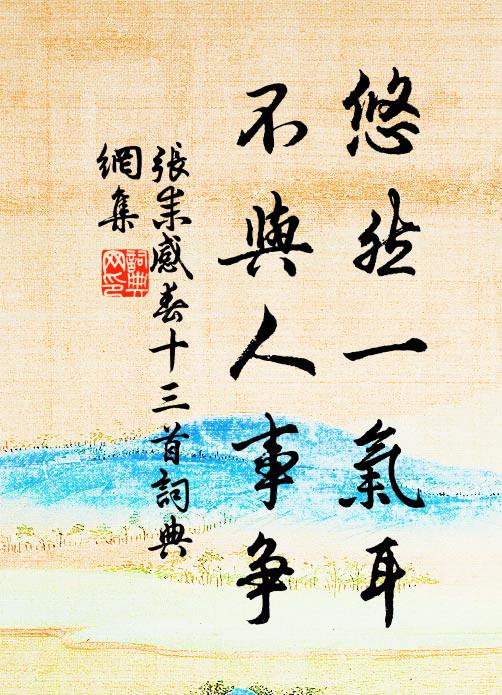 悠然一氣耳
不與人事争
張耒感春十三首詞典
網集
詞典
网印